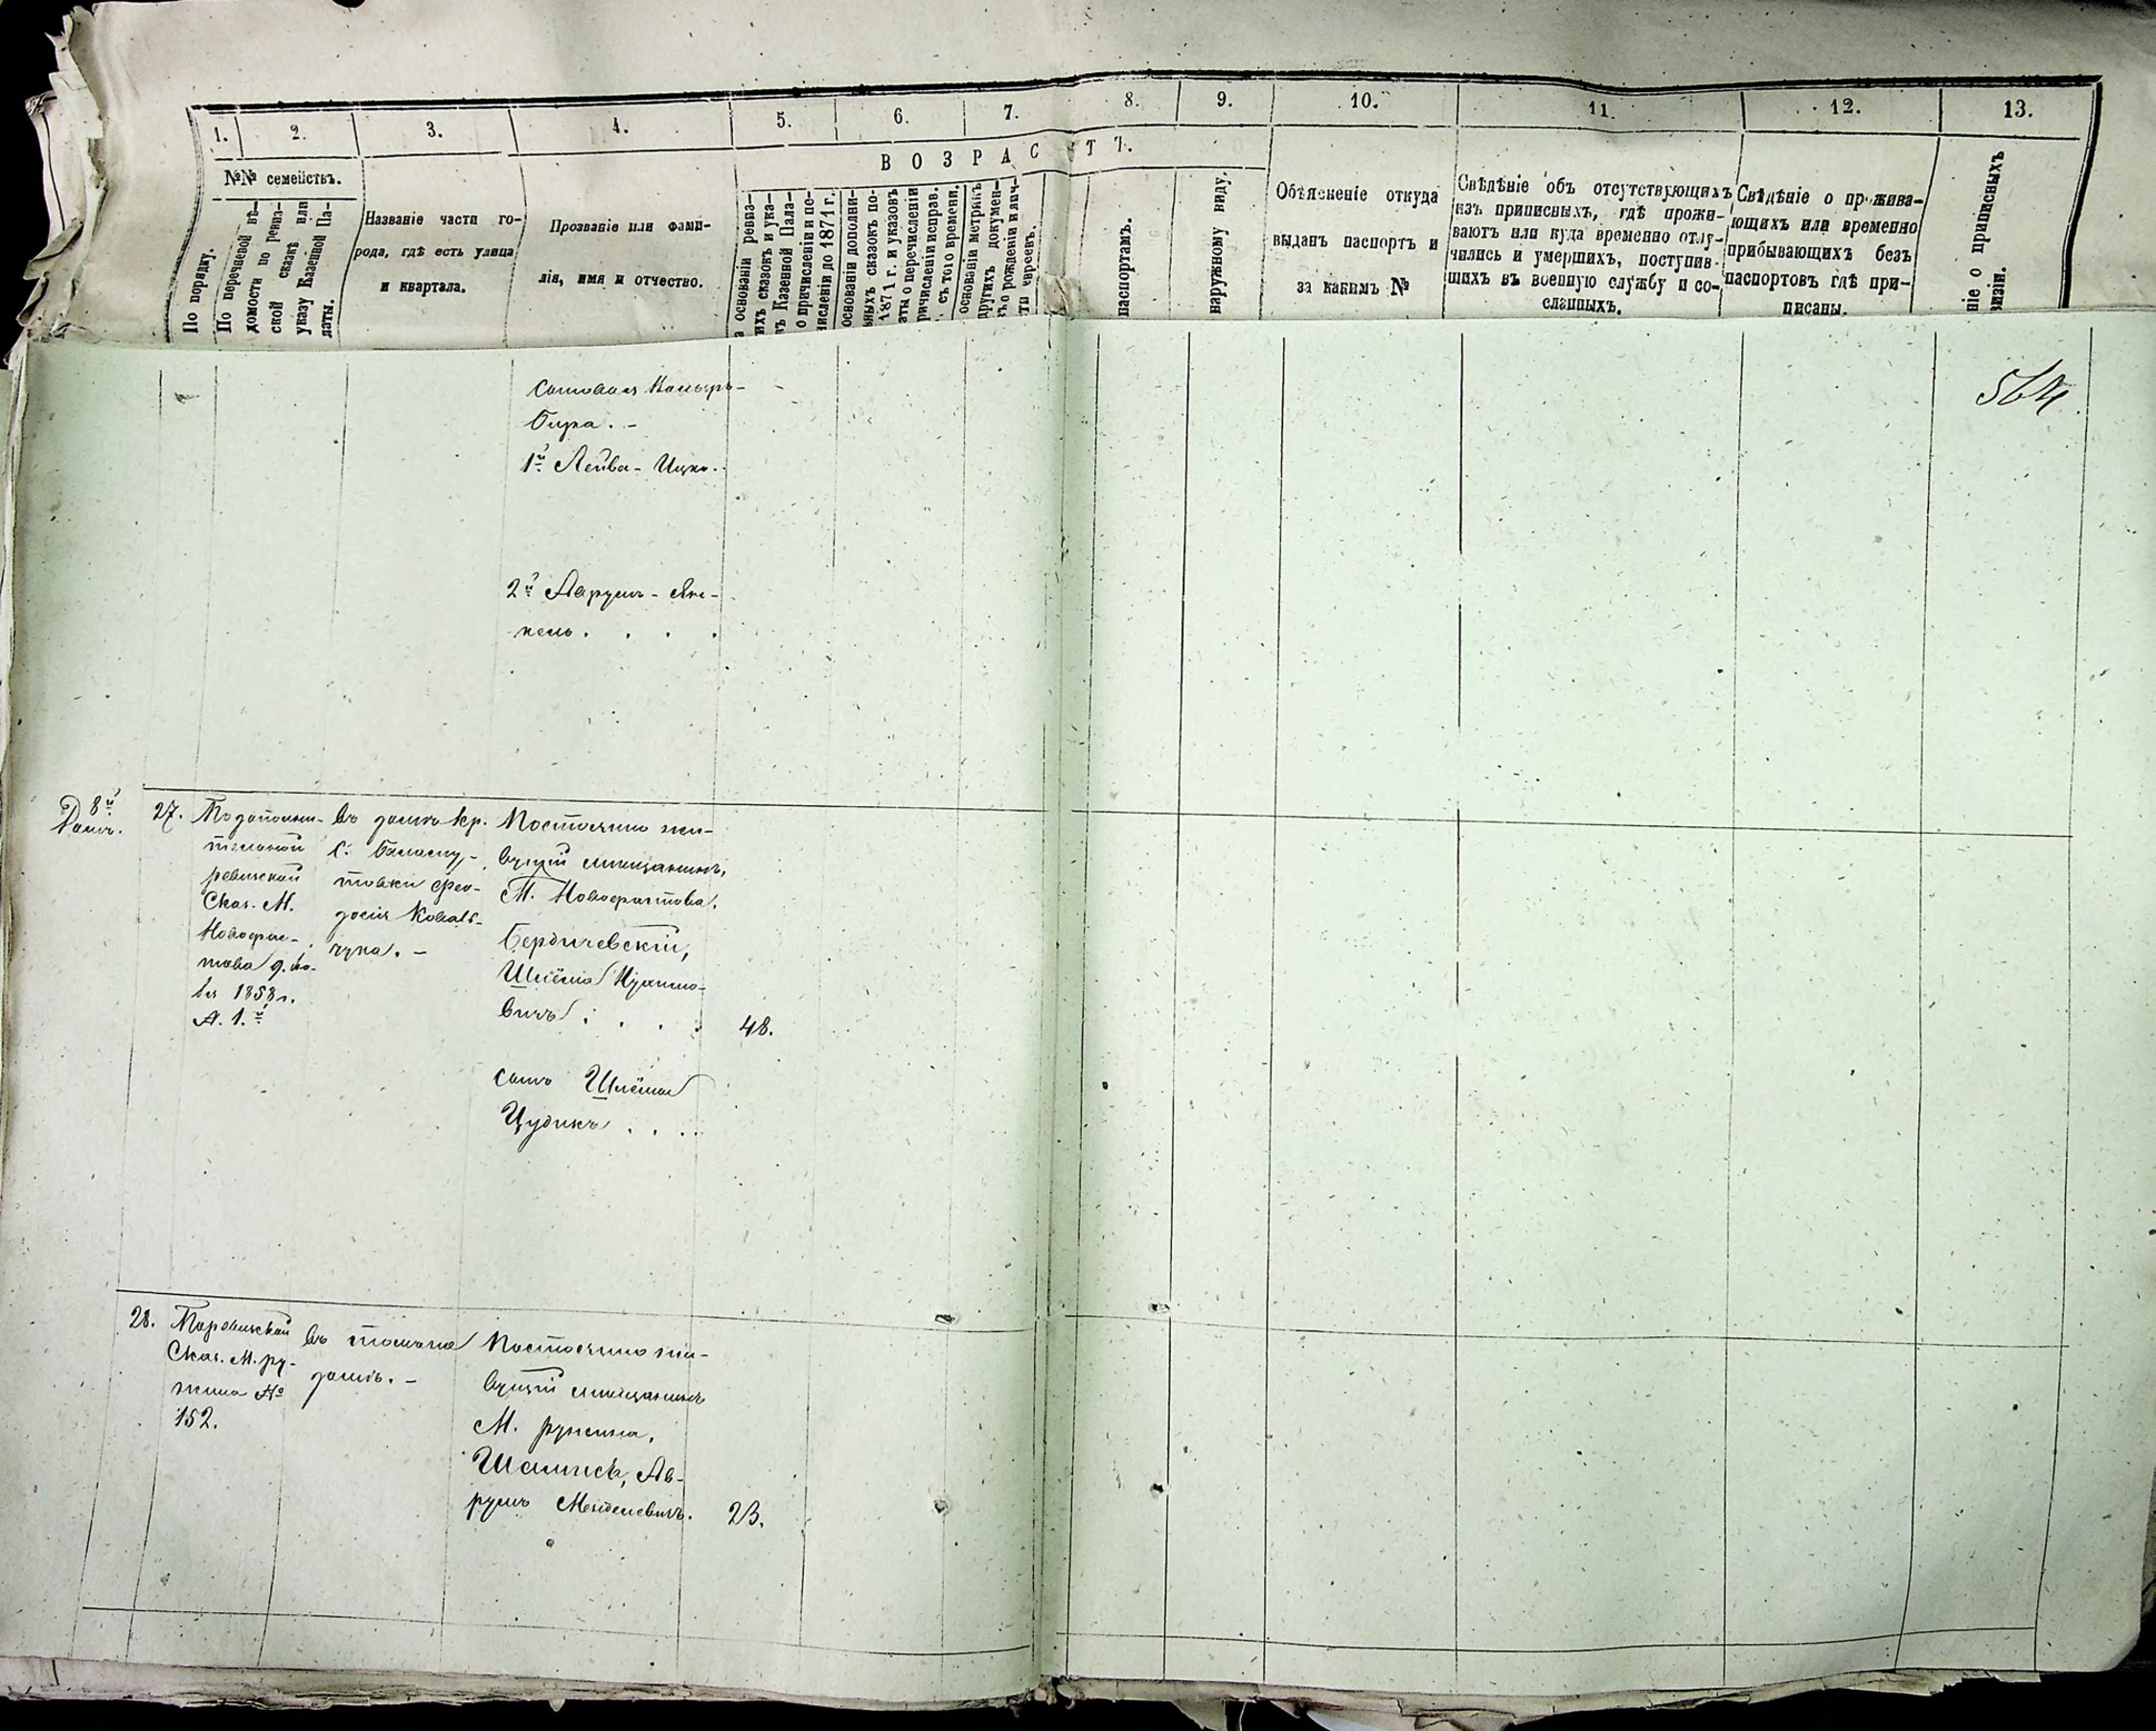 1. 2. 3. 4. 5. 6. 7. 8. 9. 10. 11. 12. 13.
ВОЗРАСТЪ.
№№ семействъ.
По порядку.
По перечневой вѣ-
домости по ревиз-
ской сказкѣ или
указу Казенной Па-
латы.
Названіе части го-
рода, гдѣ есть улица
и квартала.
Прозваніе или фами-
лія, имя и отчество.
основаніи ревиз-
ихъ сказокъ и ука-
въ Казенной Пала-
о причисленіи и пе-
численіи до 1871 г.
основаніи дополни-
ьныхъ сказокъ по-
1871 г. и указовъ
аты о перечисленіи
ричисленіи исправ.
съ того времени.
основаніи метрикъ
другихъ докумен-
ъ о рожденіи и лич-
ти евреевъ.
паспортамъ.
наружному виду.
Объясненіе откуда
выданъ паспортъ и
за какимъ №
Свѣдѣніе объ отсутствующихъ
изъ приписныхъ, гдѣ прожи-
ваютъ или куда временно отлу-
чились и умершихъ, поступив-
шихъ въ военную службу и со-
сланныхъ.
Свѣдѣніе о прожива-
ющихъ или временно
прибывающихъ безъ
паспортовъ гдѣ при-
писаны.
ніе о приписныхъ
визіи.
564
1й Лейба-Ицко.
2й Аврумъ-Ян-
кель.
8й
Домъ.
27. По дополни-
тельной
ревизской
Сказ. М.
Новофас-
това 9. но-
1858 г.
А. 1.й
въ домѣ кр.
с.
товки Фео-
досія Коваль-
чука. –
Постоянно жи-
вущій мѣщанинъ,
М. Новофастова.
Бердичевскій,
Шлёма
вичъ 48.
сынъ Шлёмы
Цудикъ
28. По ревизской
Сказ. М. Ру-
жина №
152.
въ томъ же
домѣ. –
Постоянно жи-
вущій мѣщанинъ
М. Ружина,
Ав-
румъ Менделевичъ. 23.